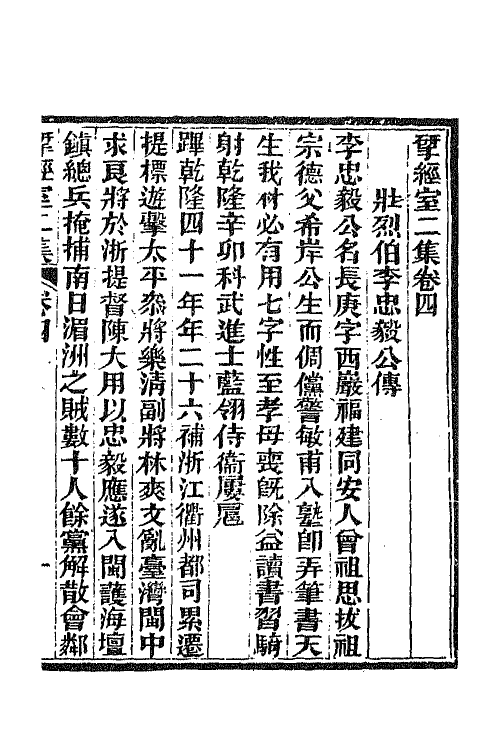 揅經室二集卷四
壯烈伯李忠毅公傳
李忠毅公名長庚字西巖福建同安人曾祖思拔祖
宗德父希岸公生而倜儻警敏甫入塾卽弄筆書天
生我材必有用七字性至孝母喪旣除益讀書習騎
射乾隆辛卯科武進士藍翎侍衞屢扈
蹕乾隆四十一年年二十六補浙江衢州都司累遷
提標遊擊太平叅將樂清副將林爽文亂臺灣閩中
求良將於浙提督陳大用以忠毅應遂入閩護海壇
鎮總兵掩捕南日湄洲之賊數十人餘黨解散會鄰
揅經室二集 卷四 一